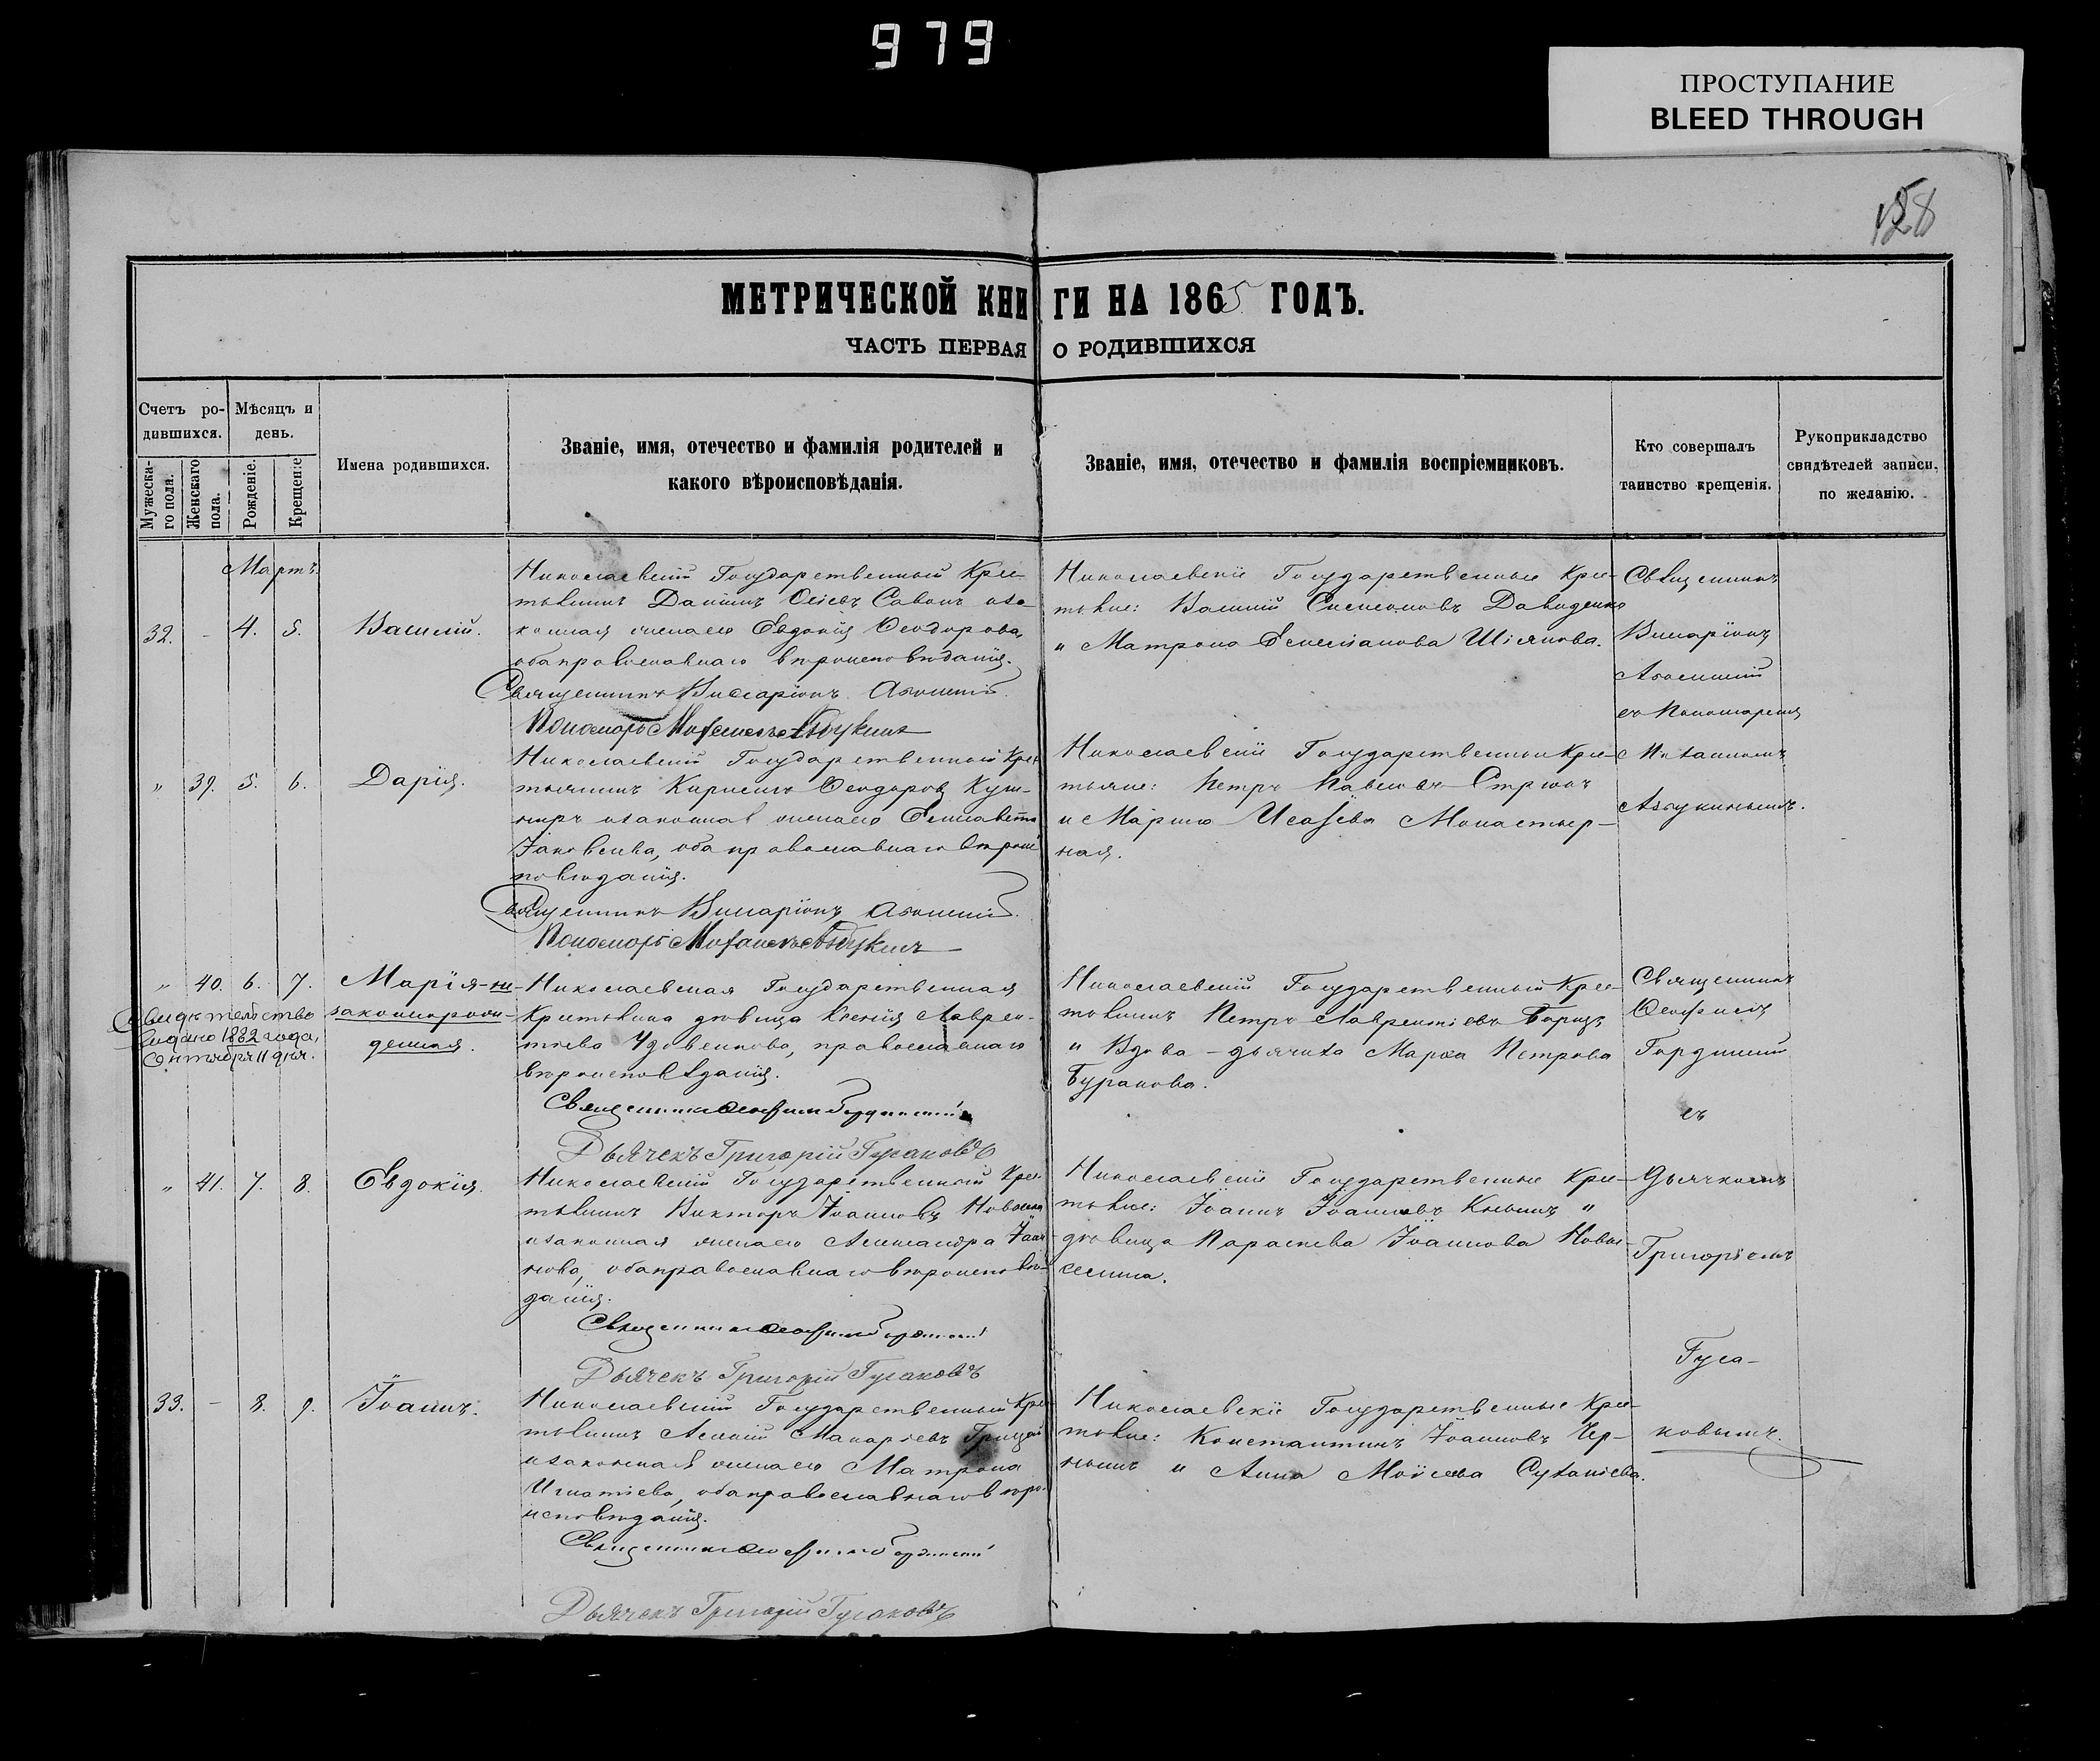 979
ПРОСТУПАНИЕ
BLEED THROUGH
158
МЕТРИЧЕСКОЙ КНИГИ НА 1865 ГОДЪ.
ЧАСТЬ ПЕРВАЯ О РОДИВШИХСЯ
Счетъ ро-
дившихся.
Мужеска-
го пола.
Женскаго
пола.
Мѣсяцъ и
день.
Рожденіе.
Крещеніе
Имена родившихся.
Званіе, имя, отечество и фамилія родителей и
какого вѣроисповѣданія.
Званіе, имя, отечество и фамилія воспріемниковъ.
Кто совершалъ
таинство крещенія.
Рукоприкладство
свидѣтелей записи,
по желанію.
Мартъ.
32. - 4. 5. Василій.
Николаевскій Государственный Кре-
стьянинъ Даніилъ Савва изъ
конная жена его Евдокія Ѳеодорова,
оба православнаго вѣроисповѣданія.
Священникъ Виссаріонъ
Пономарь
Николаевскіе Государственные Кре-
стьяне: Василій Симеоновъ Давиденко
и Матрона Емеліанова
Священникъ
Виссаріонъ
съ Пономаремъ
" 39. 5. 6. Дарія.
Николаевскій Государственный Кре-
стьянинъ Кириллъ Ѳеодоровъ Куш-
ниръ и законная жена его Елисавета
Іаковлева, оба православнаго вѣроис-
повѣданія.
Священникъ Виссаріонъ
Пономарь
Николаевскіе Государственные Кре-
стьяне: Петръ Павловъ
и Марѳа Монастыр-
ная.
" 40. 6. 7. Марія-не-
законнорож-
денная.
Свидѣтельство
выдано 1882 года,
Сентября 11 дня.
Николаевская Государственная
Крестьянка дѣвица Ксенія Лаврен-
тіева Удовенкова, православнаго
вѣроисповѣданія.
Священникъ Ѳеофилъ Гординскій
Дьячекъ Григорій Гусаковъ
Николаевскій Государственный Кре-
стьянинъ Петръ Лаврентіевъ
и Вдова - дьячиха Марѳа Петрова
Буракова.
Священникъ
Ѳеофилъ
Гординскій
съ
" 41. 7. 8. Евдокія.
Николаевскій Государственный Кре-
стьянинъ Викторъ Іоанновъ
и законная жена его Александра Іоан-
нова, оба православнаго вѣроисповѣ-
данія.
Священникъ Ѳеофилъ Гординскій
Дьячекъ Григорій Гусаковъ
Николаевскіе Государственные Кре-
стьяне: Іоаннъ Іоанновъ и
дѣвица Параскева Іоаннова Ново-
сельна.
Дьячкомъ
Григоріемъ
Гуса-
33. - 8. 9. Іоаннъ.
Николаевскій Государственный Кре-
стьянинъ Макаріевъ Грицай
и законная жена его Матрона
Игнатіева, оба православнаго вѣро-
исповѣданія.
Священникъ Ѳеофилъ Гординскій
Дьячекъ Григорій Гусаковъ
Николаевскіе Государственные Кре-
стьяне: Константинъ Іоанновъ Чер-
ныш и Анна Моисеева
ковымъ.